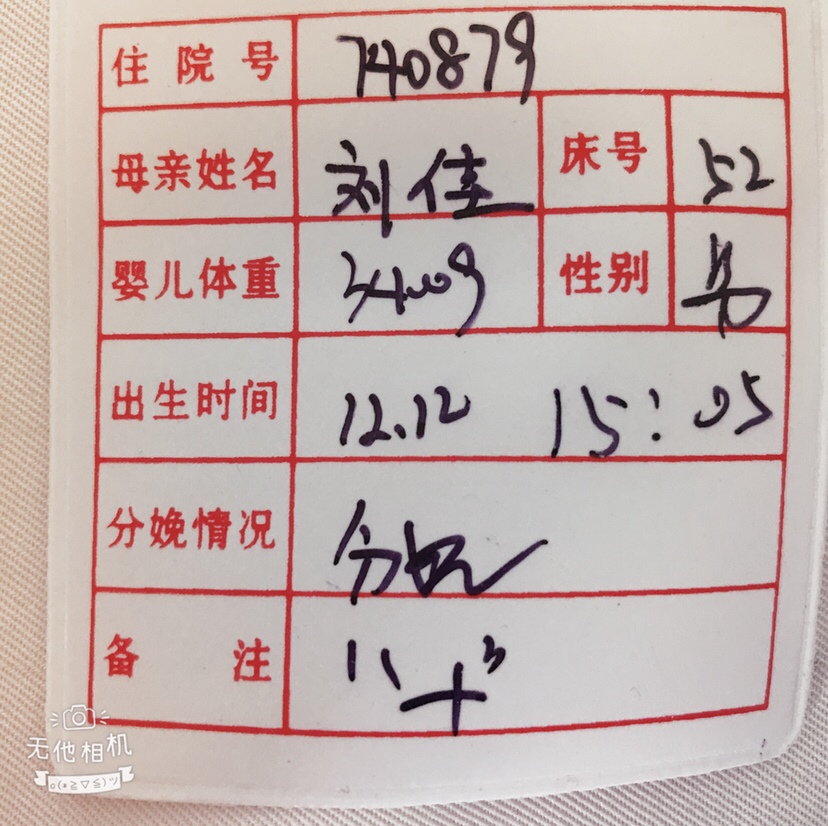 住院号 740879
母亲姓名 刘佳 床号 52
婴儿体重 3400g 性别 男
出生时间 12.12 15:05
分娩情况 分娩
备注
无他相机
o(≧▽≦)ツ